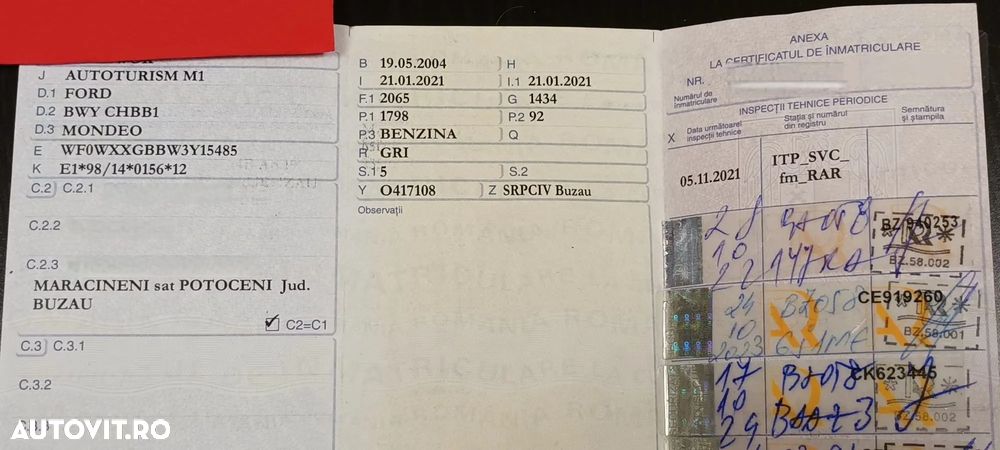 J AUTOTURISM M1
D.1 FORD
D.2 BWY CHBB1
D.3 MONDEO
E WF0WXXGBBW3Y15485
K E1*98/14*0156*12
C.2 C.2.1
C.2.2
C.2.3
MARACINENI sat POTOCENI Jud.
BUZAU
C2=C1
C.3 C.3.1
C.3.2
B 19.05.2004 H
I 21.01.2021 I.1 21.01.2021
F.1 2065 G 1434
P.1 1798 P.2 92
P.3 BENZINA Q
R GRI
S.1 5 S.2
Y O417108 Z SRPCIV Buzau
Observații
ANEXA
LA CERTIFICATUL DE ÎNMATRICULARE
NR.
Numărul de
înmatriculare
INSPECȚII TEHNICE PERIODICE
X Data următoarei
inspecții tehnice
Stația și numărul
din registru
Semnătura
și ștampila
05.11.2021
ITP_SVC_
fm_RAR
28
10
22
BZ 940253
BZ.58.002
24
10
2023
BZ058
CE919260
BZ.58.001
17
10
BZ058
CK623445
BZ.58.002
AUTOVIT.RO